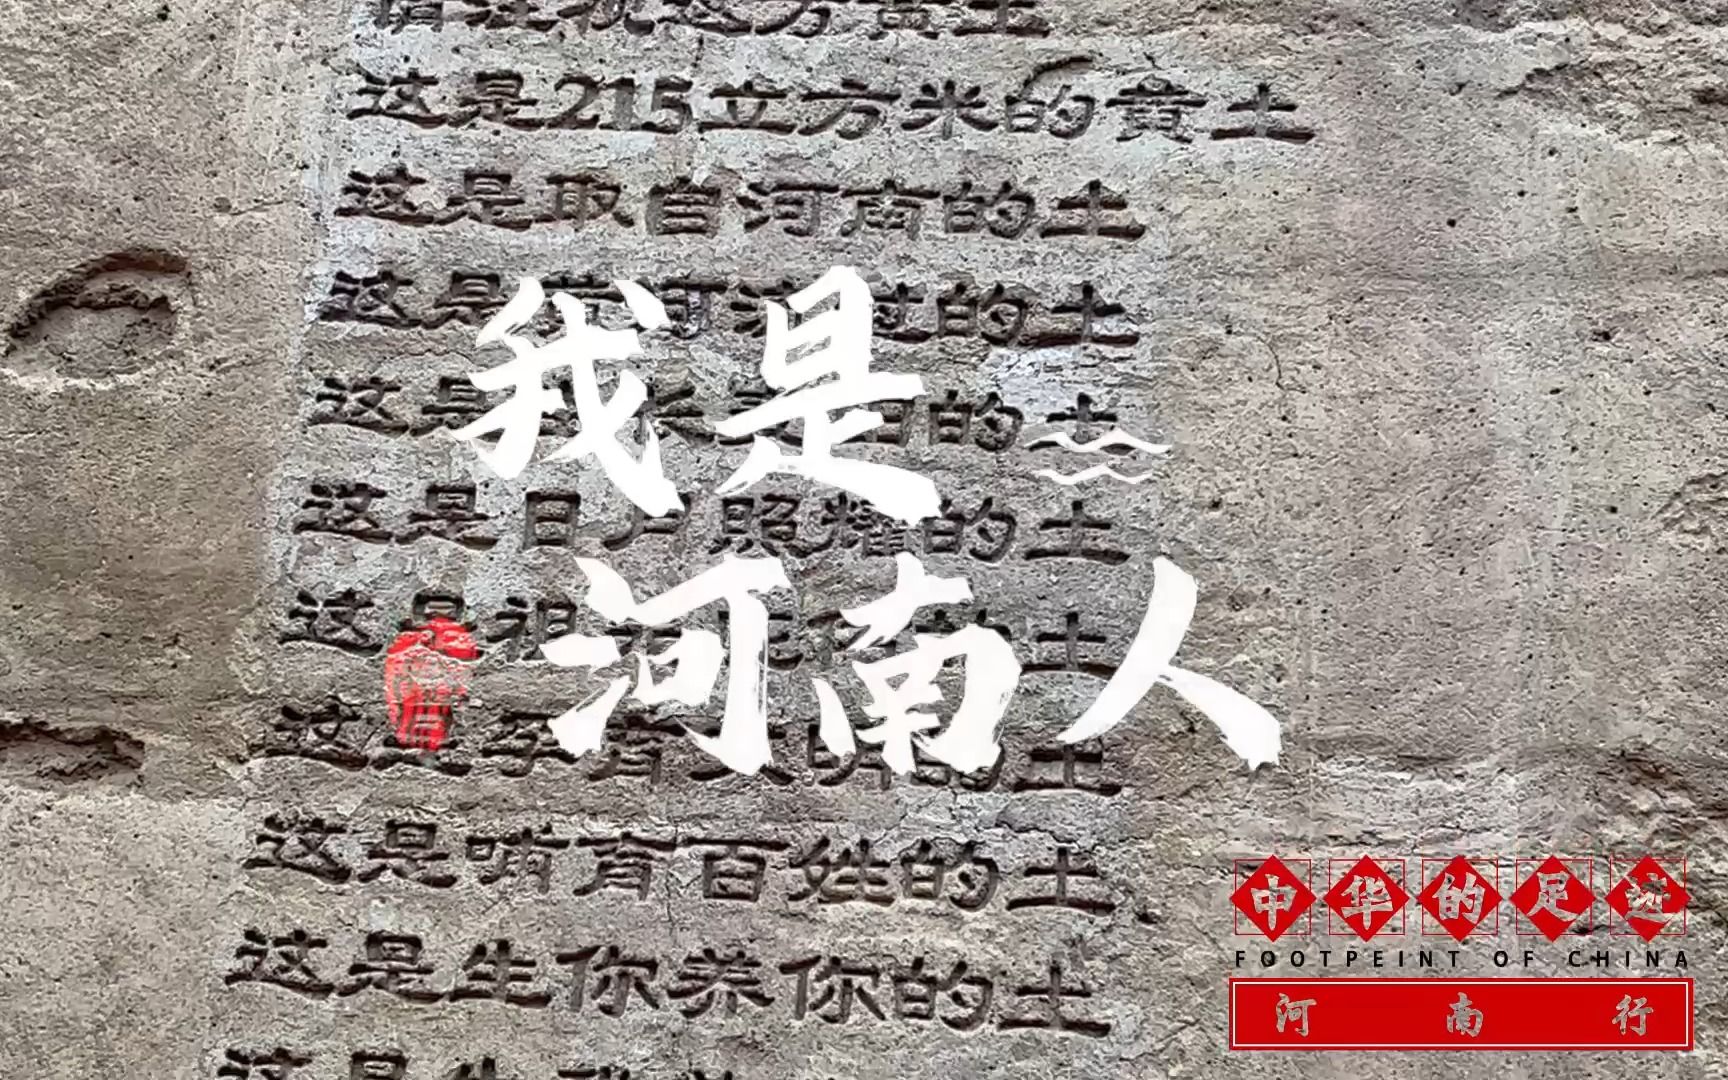 请注视这方黄土
这是215立方米的黄土
这是取自河南的土
这是黄河流过的土
这是 长 的土
这是日月照耀的土
这是祖 的土
这是孕育文明的土
这是哺育百姓的土
这是生你养你的土
这是生我养
我是
河南人
中华的足迹
FOOTPEINT OF CHINA
河南行